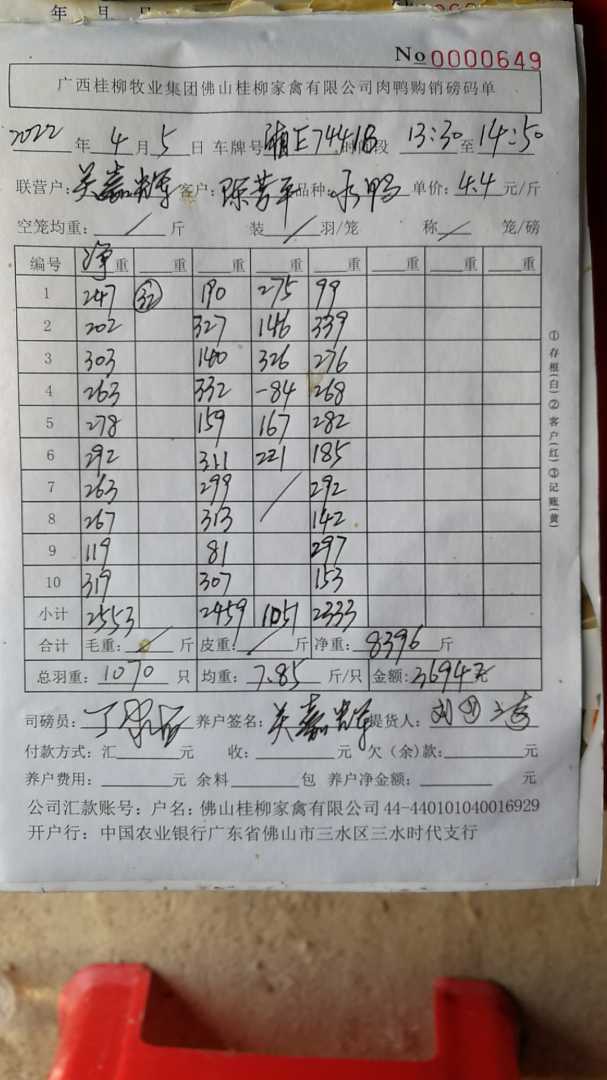 年 月 日
No 0000649
广西桂柳牧业集团佛山桂柳家禽有限公司肉鸭购销磅码单
2022 年 4 月 5 日 车牌号 湘E7441B 时间段 13:30 至 14:50
联营户: 关嘉辉 客户: 陈芳平 品种: 水鸭 单价: 4.4 元/斤
空笼均重: / 斤 装 / 羽/笼 称 / 笼/磅
编号 净重 重 重 重 重 重 重 重
1 247 32 190 275 99
2 202 327 146 339
3 303 140 326 276
4 263 332 -84 268
5 278 159 167 282
6 292 311 221 185
7 263 299 / 292
8 267 313 142
9 119 81 297
10 319 307 153
小计 2553 2459 1051 2333
合计 毛重: / 斤 皮重: / 斤 净重: 8396 斤
总羽重: 1070 只 均重: 7.85 斤/只 金额: 3694元
司磅员: 养户签名: 关嘉辉 提货人:
付款方式: 汇 元 收: 元 欠(余)款: 元
养户费用: 元 余料 包 养户净金额: 元
公司汇款账号: 户名: 佛山桂柳家禽有限公司 44-440101040016929
开户行: 中国农业银行广东省佛山市三水区三水时代支行
①存根(白)②客户(红)③记账(黄)